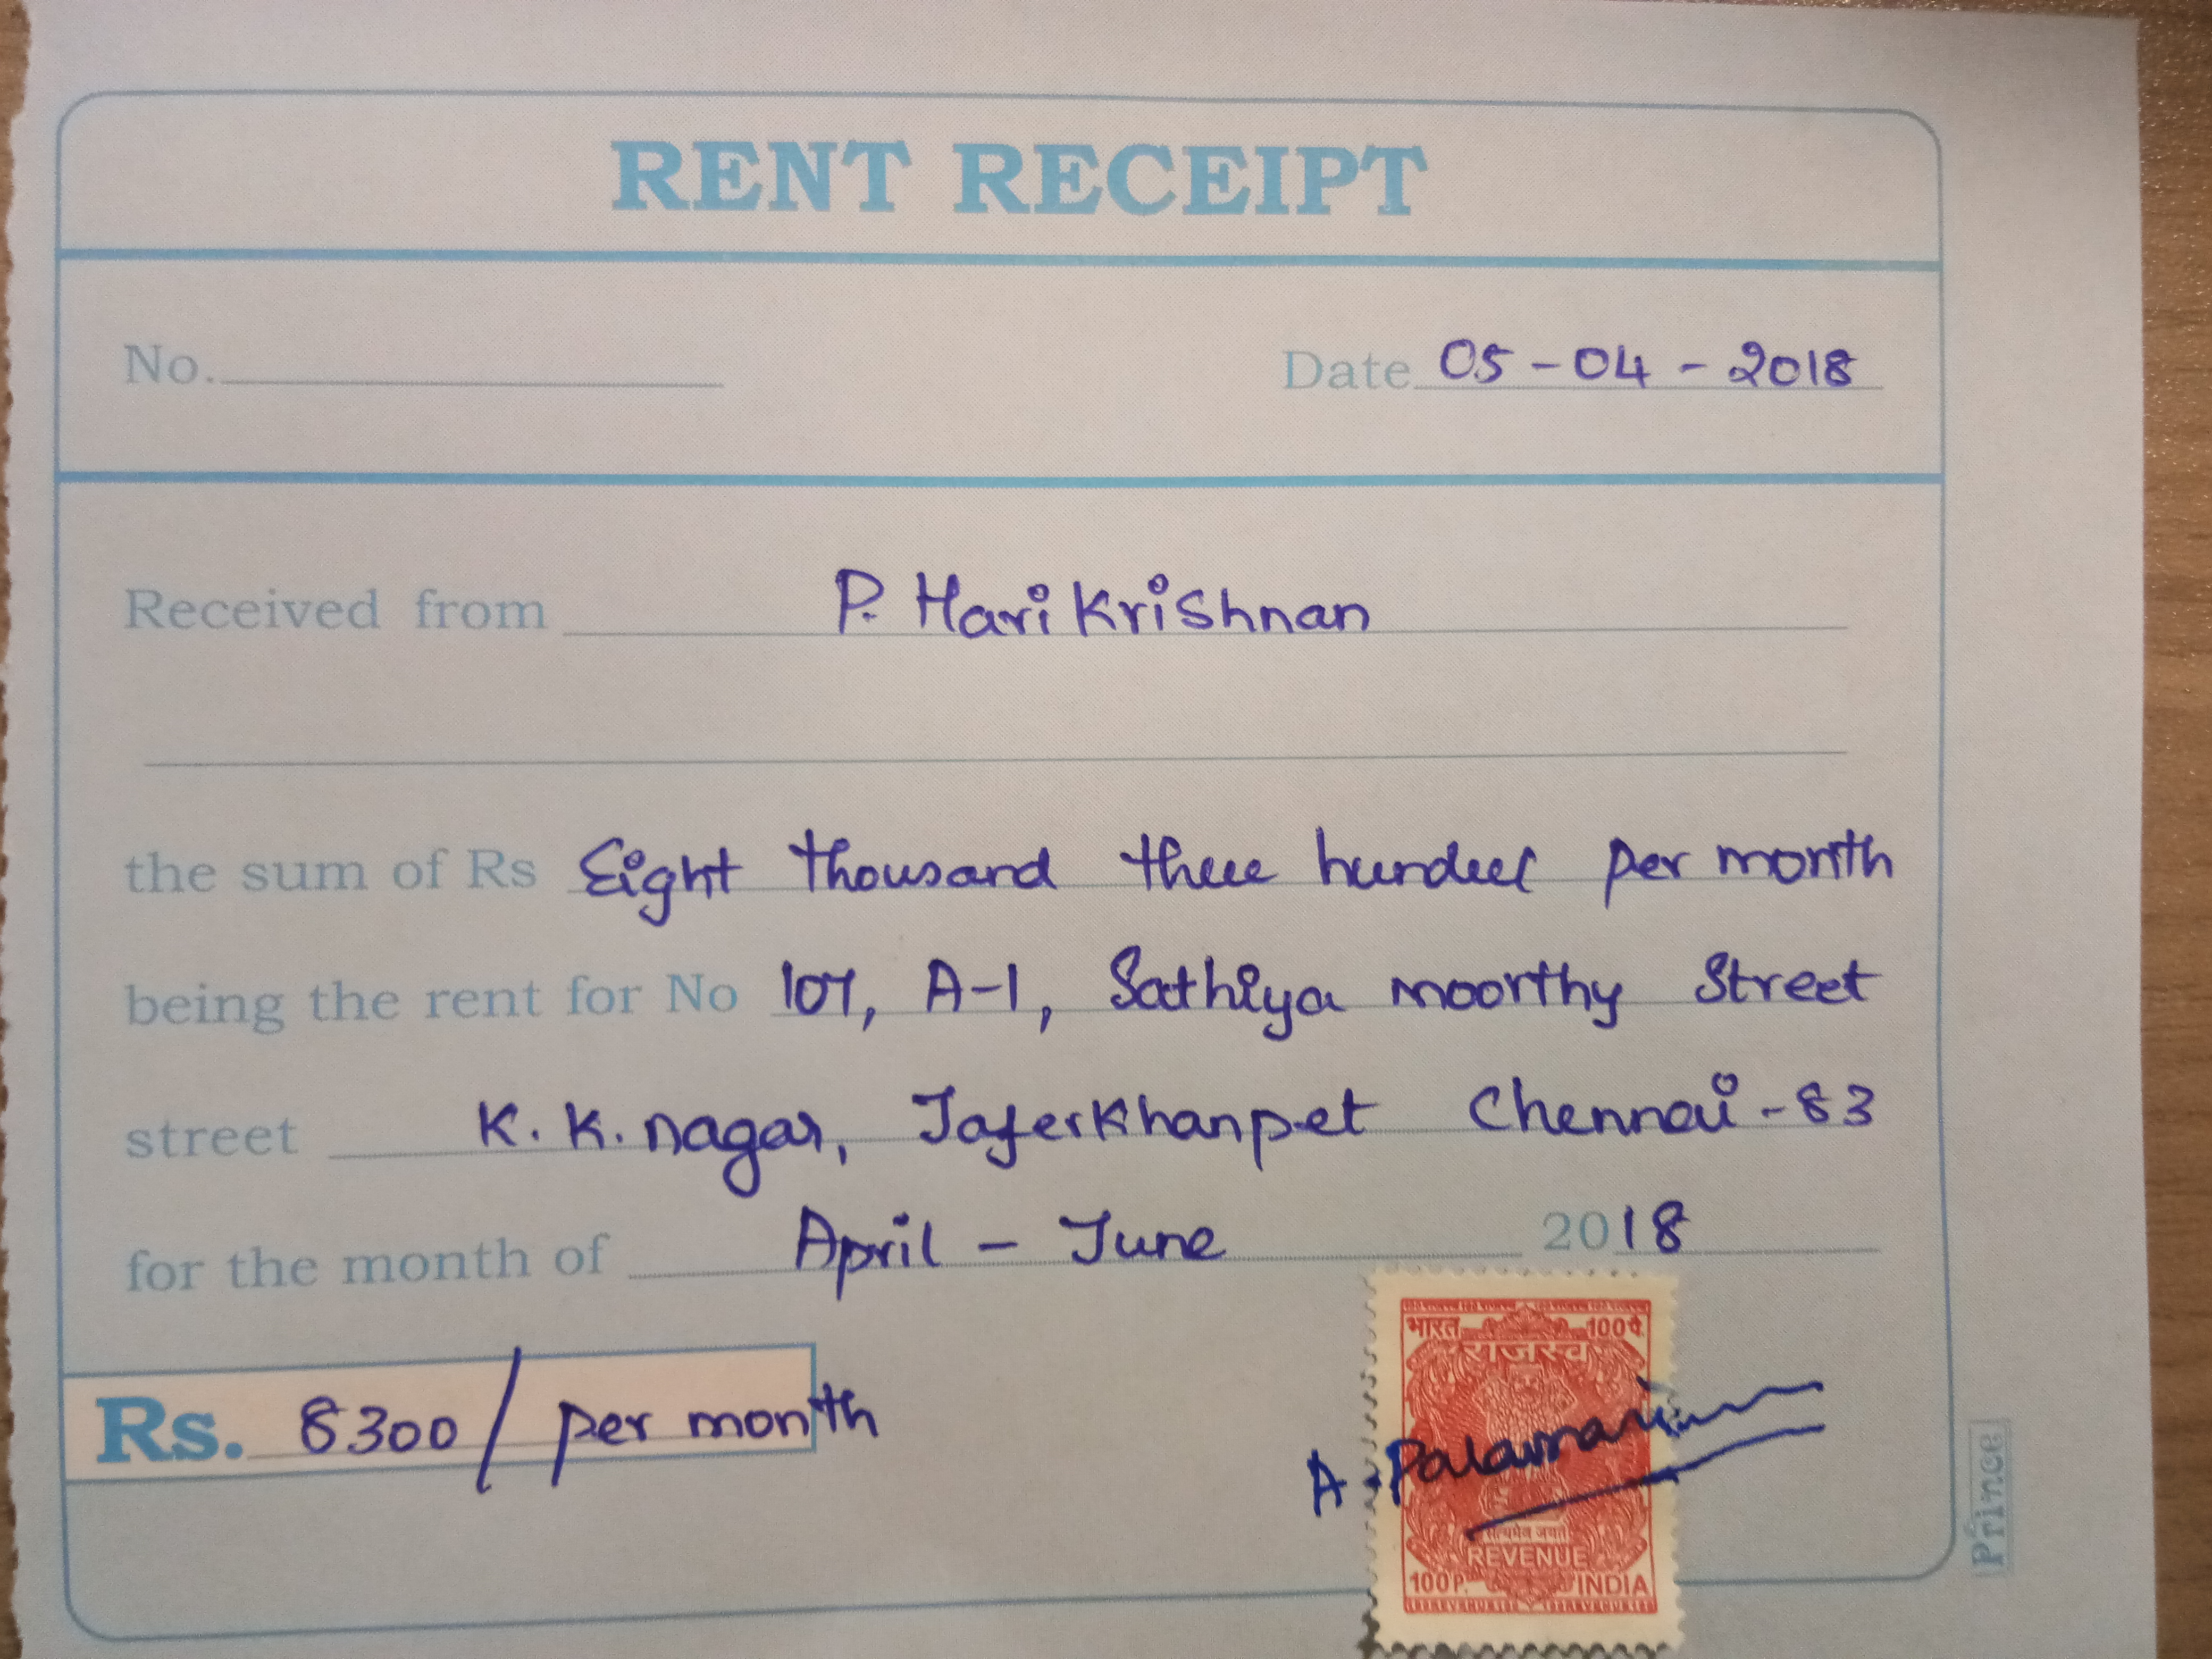 RENT RECEIPT
No. Date 05-04-2018
Received from P. Hari Krishnan
the sum of Rs Eight thousand three hundred per month
being the rent for No 107, A-1, Sathiya moorthy Street
street K.K. nagar, Jaferkhanpet Chennai-83
for the month of April - June 2018
Rs. 8300/ per month
भारत 100पै.
राजस्व
A.
सत्यमेव जयते
REVENUE
100P. INDIA
Prince